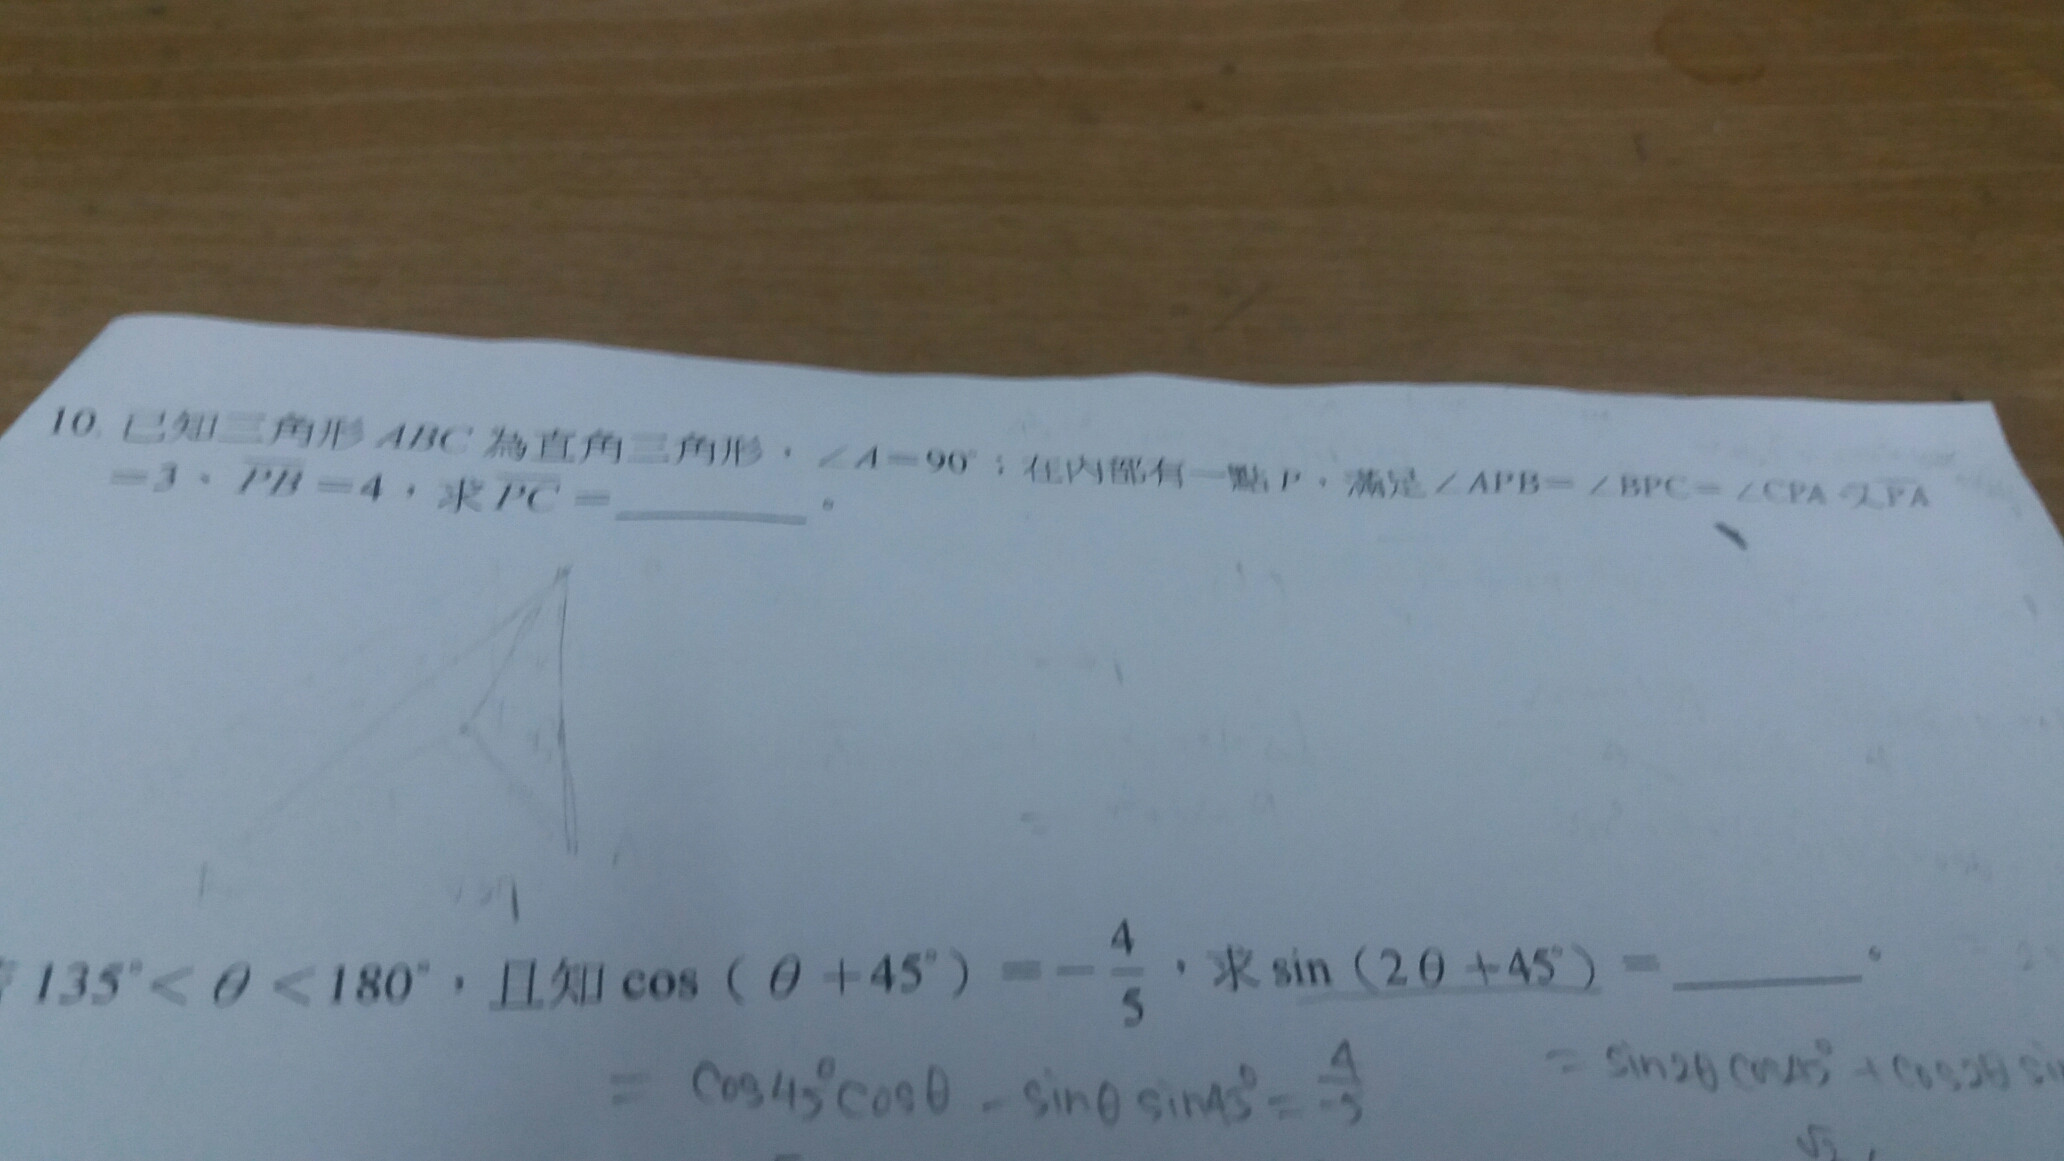 10. 已知三角形 ABC 為直角三角形，∠A=90°；在內部有一點 P，滿足∠APB=∠BPC=∠CPA 又PA
=3、PB=4，求PC=______。
135°<θ<180°，且知 cos（θ+45°）=-4/5，求 sin（2θ+45°）=______。
= cos45°cosθ - sinθ sin45° = 4/-5
= sin2θ cos45° + cos2θ